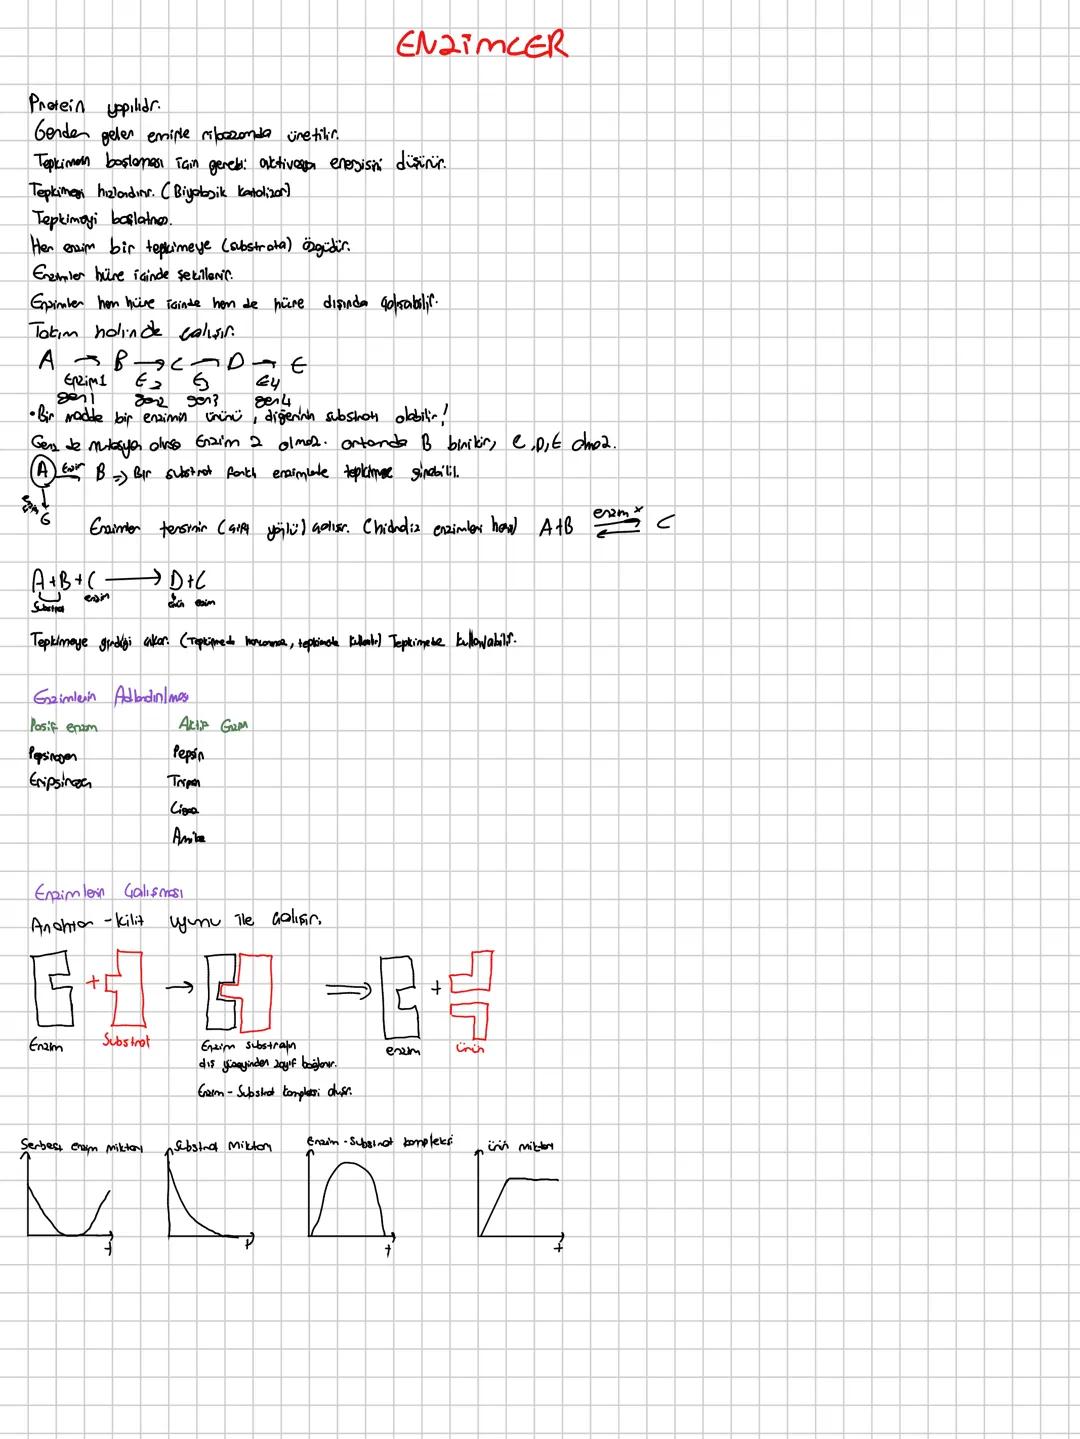 ENZİMLER
Protein yapılıdır.
Genden gelen emirle ribozomda üretilir.
Tepkimenin başlaması için gerekli aktivasyon enerjisini düşürür.
Tepkimeyi hızlandırır. (Biyolojik katalizör)
Tepkimeyi başlatmaz.
Her enzim bir tepkimeye (substrata) özgüdür.
Enzimler hücre içinde şekillenir.
Enzimler hem hücre içinde hem de hücre dışında çalışabilir.
Takım halinde çalışır.
A → B → C → D → E
Enzim1 E2 E3 E4
gen1 gen2 gen3 gen4
• Bir madde bir enzimin ürünü, diğerinin substratı olabilir!
Gen de mutasyon olursa Enzim 2 olmaz. ortamda B birikir, C, D, E olmaz.
A B => Bir substrat farklı enzimlerle tepkimeye girebilir.
Enzimler tersinir (çift yönlü) çalışır. (hidroliz enzimleri hariç) A+B enzim x C
A+B+C → D+C
Substrat enzim ürün enzim
Tepkimeye girdiği çıkar. (Tepkimede harcanmaz, Tepkimede kullanılabilir.
Enzimlerin Adlandırılması
Pasif enzim Aktif Enzim
Pepsinojen Pepsin
Tripsin
Lipaz
Amilaz
Enzimlerin Çalışması
Anahtar - kilit uyumu ile çalışır.
+ → ⇒ +
Enzim Substrat Enzim substratın enzim ürün
dış yüzeyinden zayıf bağlanır.
Enzim - Substrat kompleksi oluşur.
Serbest enzim miktarı Substrat Miktarı Enzim - Substrat kompleksi ürün miktarı
t t t t